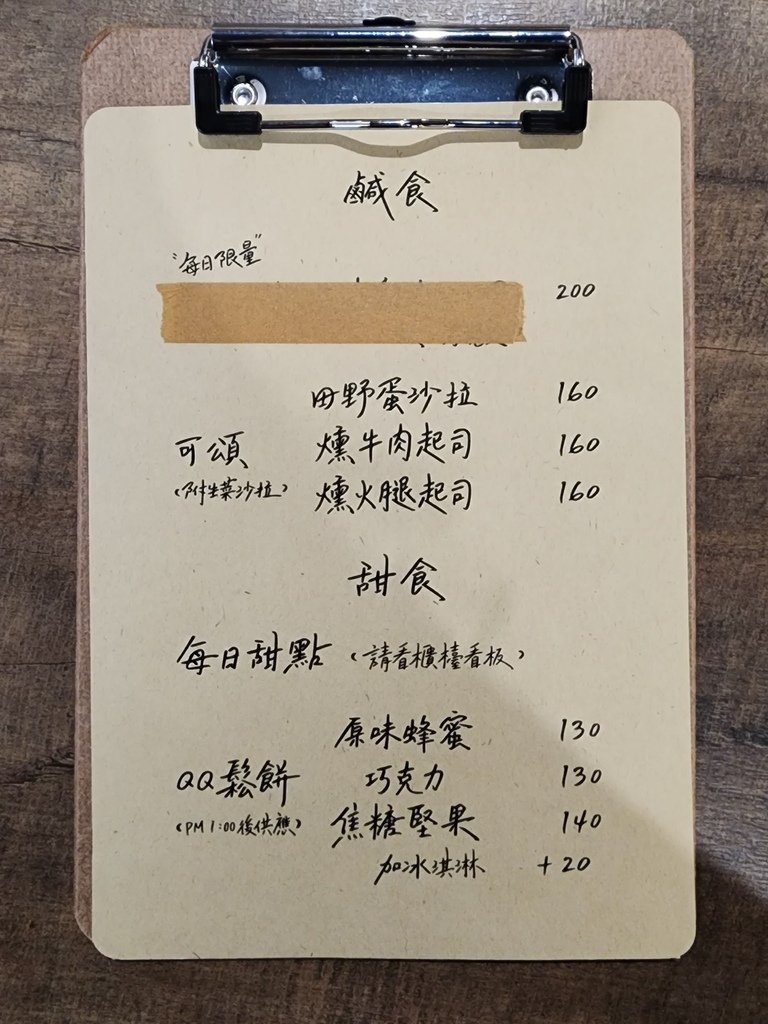 鹹食
"每日限量"
200
田野蛋沙拉 160
可頌 燻牛肉起司 160
(附生菜沙拉) 燻火腿起司 160
甜食
每日甜點 (請看櫃檯看板)
原味蜂蜜 130
QQ鬆餅 巧克力 130
(PM 1:00後供應) 焦糖堅果 140
加冰淇淋 +20